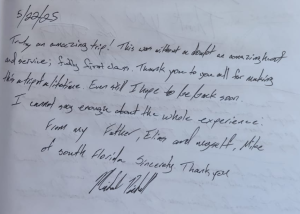 5/22/25
Truly an amazing trip! This was without a doubt an amazing
and service; fully first class. Thank you to you all for making
this a trip of a lifetime. Even still I hope to be back soon
I cannot say enough about the whole experience.
From my Father, Elias and myself, Mike
of south Florida. Sincerely Thank you